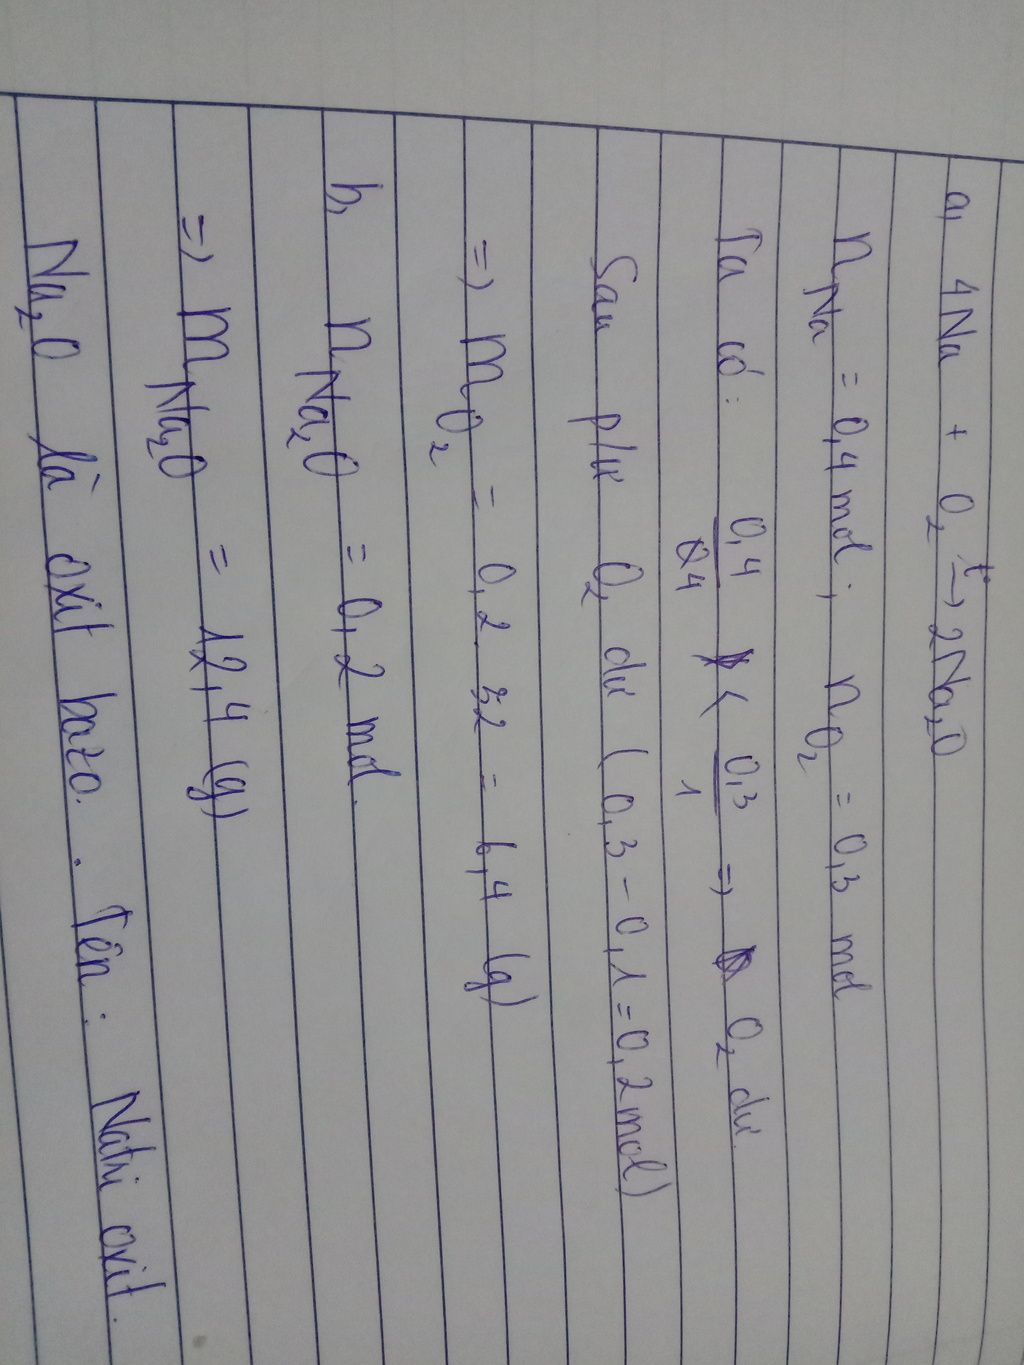 a, 4Na + O₂ –t°→ 2Na₂O
n Na = 0,4 mol ; n O₂ = 0,3 mol
Ta có : 0,4/4 < 0,3/1 => O₂ dư.
Sau p/ư O₂ dư ( 0,3 - 0,1 = 0,2 mol )
=> m O₂ = 0,2 . 32 = 6,4 (g)
b, n Na₂O = 0,2 mol.
=> m Na₂O = 12,4 (g)
Na₂O là oxit bazo. . Tên : Natri oxit.